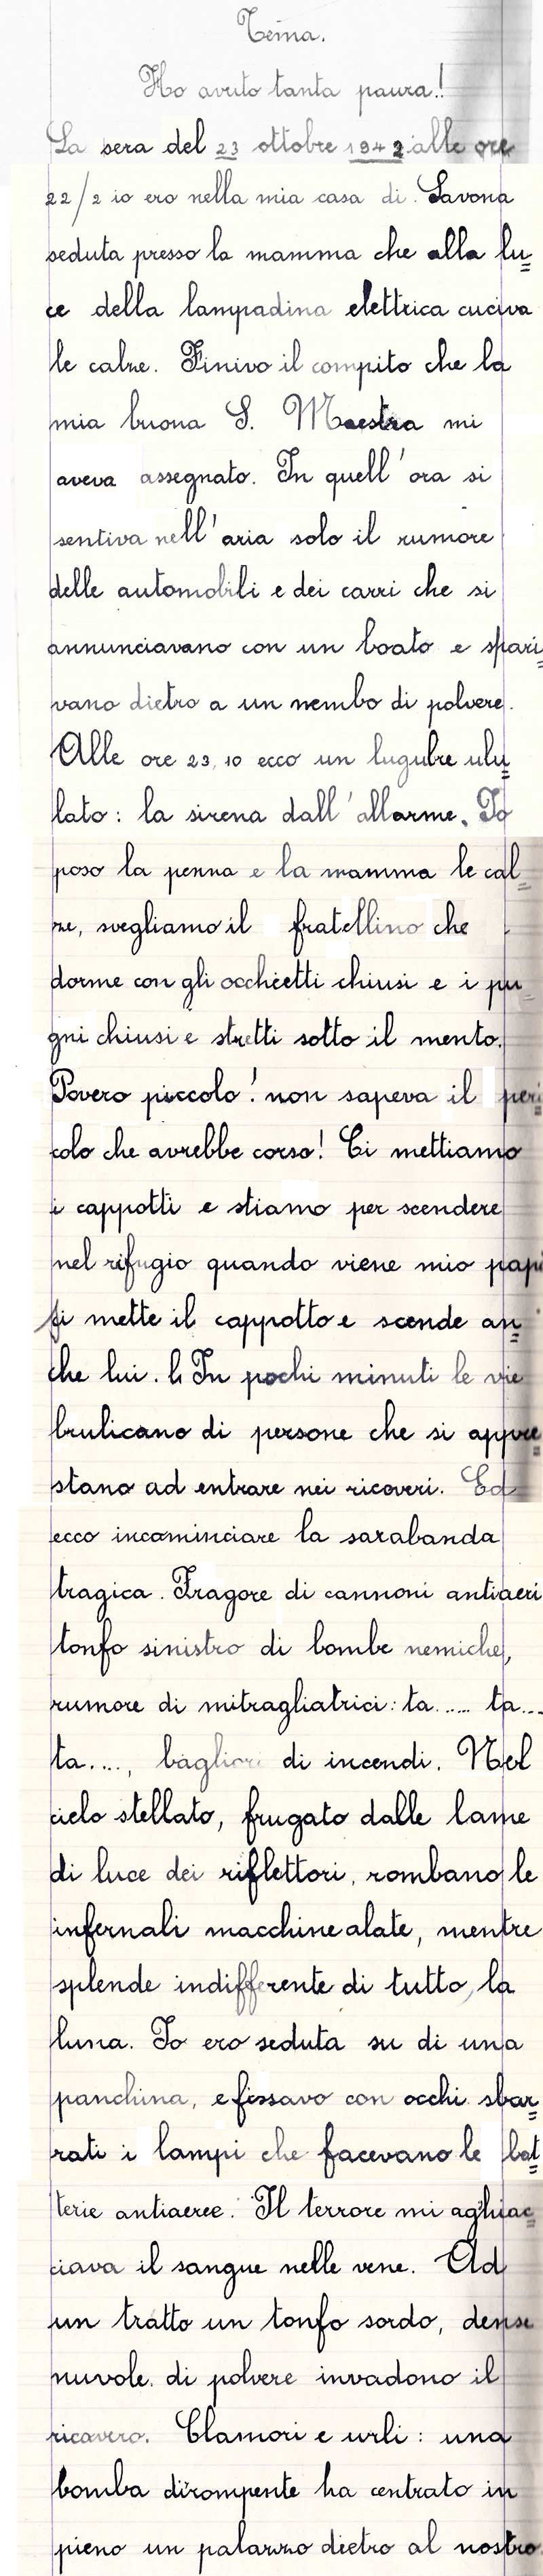 Tema.
Ho avuto tanta paura!
La sera del 23 ottobre 1942 alle ore
22/2 io ero nella mia casa di Savona
seduta presso la mamma che alla lu=
ce della lampadina elettrica cuciva
le calze. Finivo il compito che la
mia buona S. Maestra mi
aveva assegnato. In quell'ora si
sentiva nell'aria solo il rumore
delle automobili e dei carri che si
annunciavano con un boato e spari=
vano dietro a un nembo di polvere.
Alle ore 23,10 ecco un lugubre ulu=
lato: la sirena dall'allarme. Io
poso la penna e la mamma le cal=
ze, svegliamo il fratellino che
dorme con gli occhietti chiusi e i pu
gni chiusi e stretti sotto il mento.
Povero piccolo! non sapeva il peri=
colo che avrebbe corso! Ci mettiamo
i cappotti e stiamo per scendere
nel rifugio quando viene mio papi
si mette il cappotto e scende an=
che lui. In pochi minuti le vie
brulicano di persone che si appre=
stano ad entrare nei ricoveri. Ed
ecco incominciare la sarabanda
tragica. Fragore di cannoni antiaeri
tonfo sinistro di bombe nemiche,
rumore di mitragliatrici: ta..... ta...
ta...., bagliori di incendi. Nel
cielo stellato, frugato dalle lame
di luce dei riflettori, rombano le
infernali macchine alate, mentre
splende indifferente di tutto, la
luna. Io ero seduta su di una
panchina, e fissavo con occhi sbar=
rati i lampi che facevano le bat=
terie antiaeree. Il terrore mi aghiac=
ciava il sangue nelle vene. Ad
un tratto un tonfo sordo, dense
nuvole di polvere invadono il
ricovero. Clamori e urli: una
bomba dirompente ha centrato in
pieno un palazzo dietro al nostro